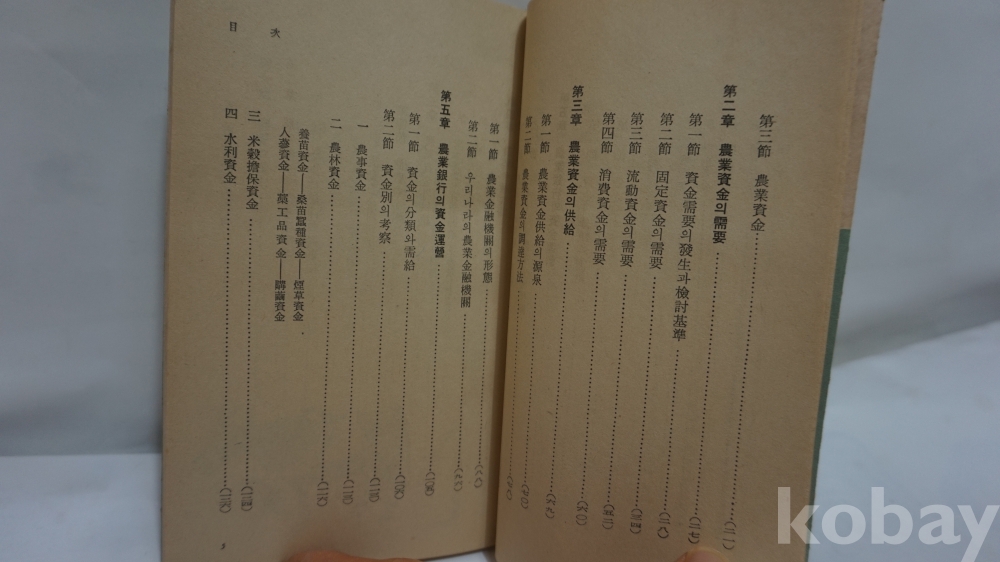 第三節 農業資金
第二章 農業資金의需要
第一節 資金需要의發生과檢討基準
第二節 固定資金의需要
第三節 流動資金의需要
第四節 消費資金의需要
第三章 農業資金의供給
第一節 農業資金供給의源泉
第二節 農業資金의調達方法
目次
第一節 農業金融機關의形態
第二節 우리나라의農業金融機關
第五章 農業銀行의資金運營
第一節 資金의分類와需給
第二節 資金別의考察
一 農事資金
二 農林資金
養苗資金──桑苗蠶種資金──煙草資金
人蔘資金──藁工品資金──購繭資金
三 米穀擔保資金
四 水利資金
5
kobay